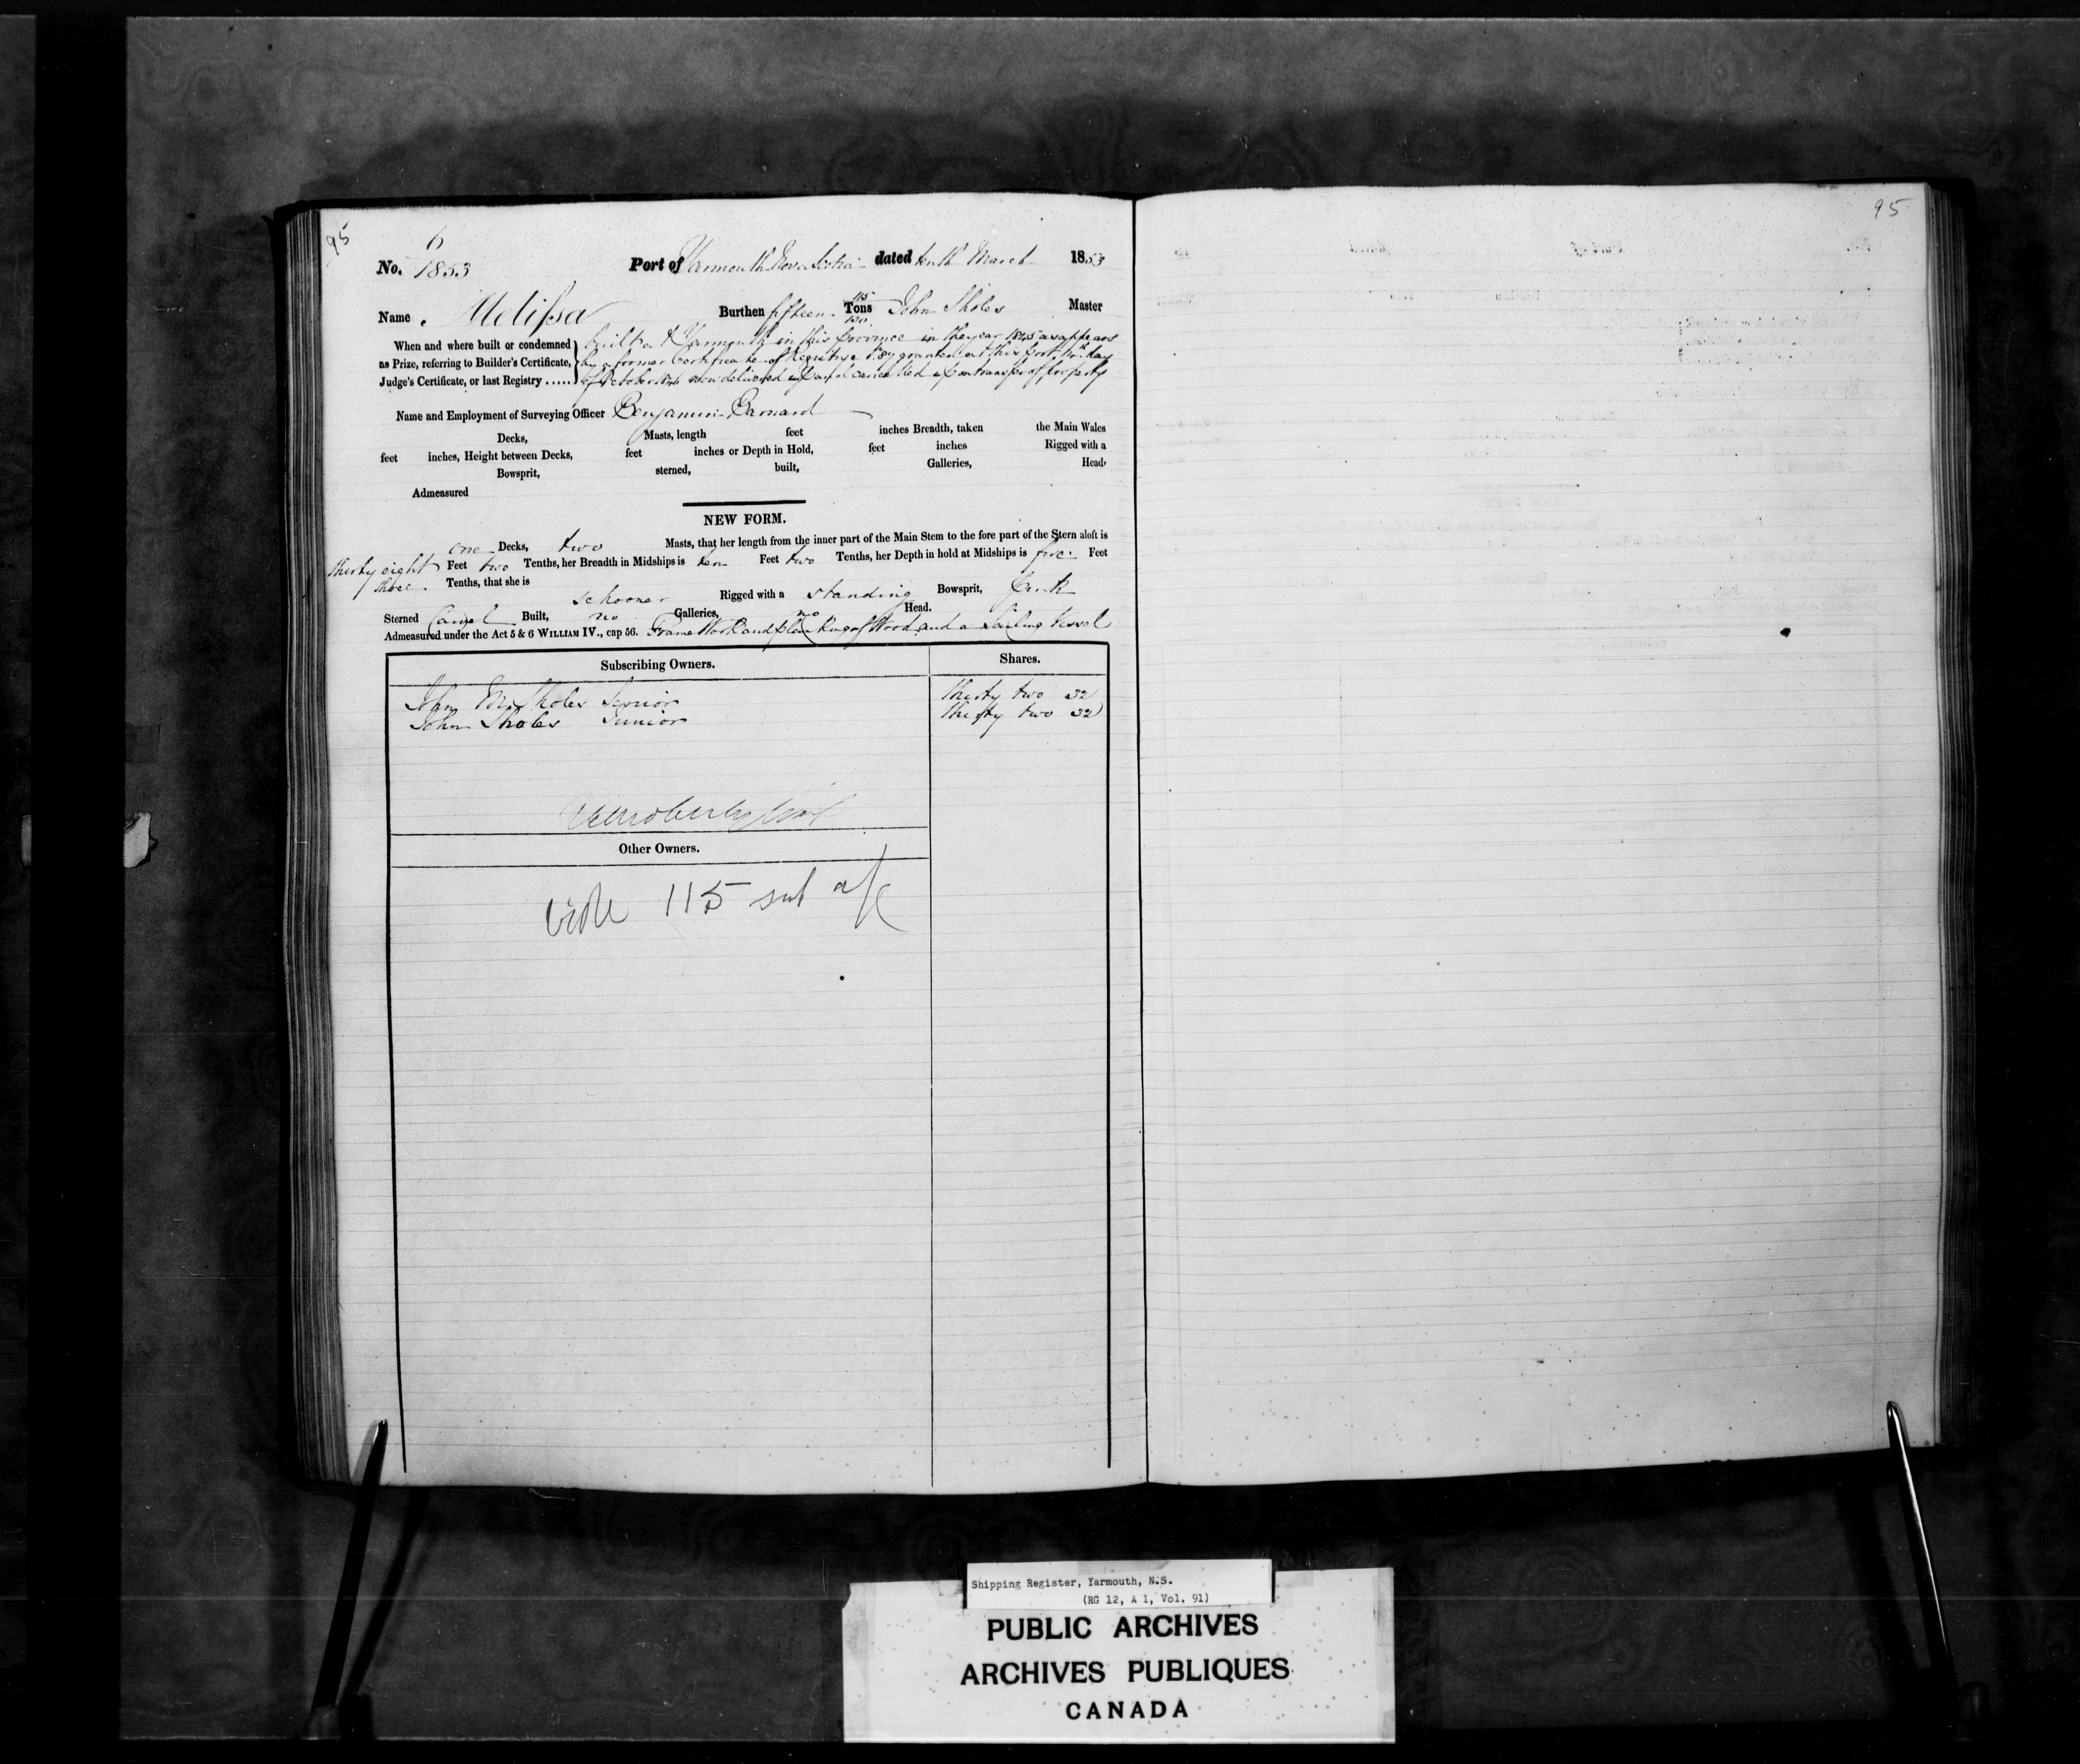 95
95
6
No. 1853 Port of Yarmouth Nova Scotia dated tenth March 1853
Name Melissa Burthen fifteen Tons John Sholes Master
When and where built or condemned
as Prize, referring to Builder's Certificate,
Judge's Certificate, or last Registry ......
built at Yarmouth in this Province in the year 1845 as appears
by a former Certificate of Registry granted at this port day
of October now delivered up and cancelled upon transfer of property
Name and Employment of Surveying Officer Benjamin Barnard
Decks, Masts, length feet inches Breadth, taken the Main Wales
feet inches, Height between Decks, feet inches or Depth in Hold, feet inches Rigged with a
Bowsprit, sterned, built, Galleries, Head,
Admeasured
NEW FORM.
one Decks, two Masts, that her length from the inner part of the Main Stem to the fore part of the Stern aloft is
thirty eight Feet two Tenths, her Breadth in Midships is ten Feet two Tenths, her Depth in hold at Midships is five Feet
three Tenths, that she is schooner Rigged with a standing Bowsprit, Pink
Sterned Carvel Built, no Galleries, no Head.
Admeasured under the Act 5 & 6 WILLIAM IV., cap 56. Frame Work and planking of Wood and a Sailing Vessel
Subscribing Owners. Shares.
John M Sholes Senior thirty two 32
John Sholes Junior thirty two 32
Other Owners.
vide 115 sub a/c
Shipping Register, Yarmouth, N.S.
(RG 12, A 1, Vol. 91)
PUBLIC ARCHIVES
ARCHIVES PUBLIQUES
CANADA